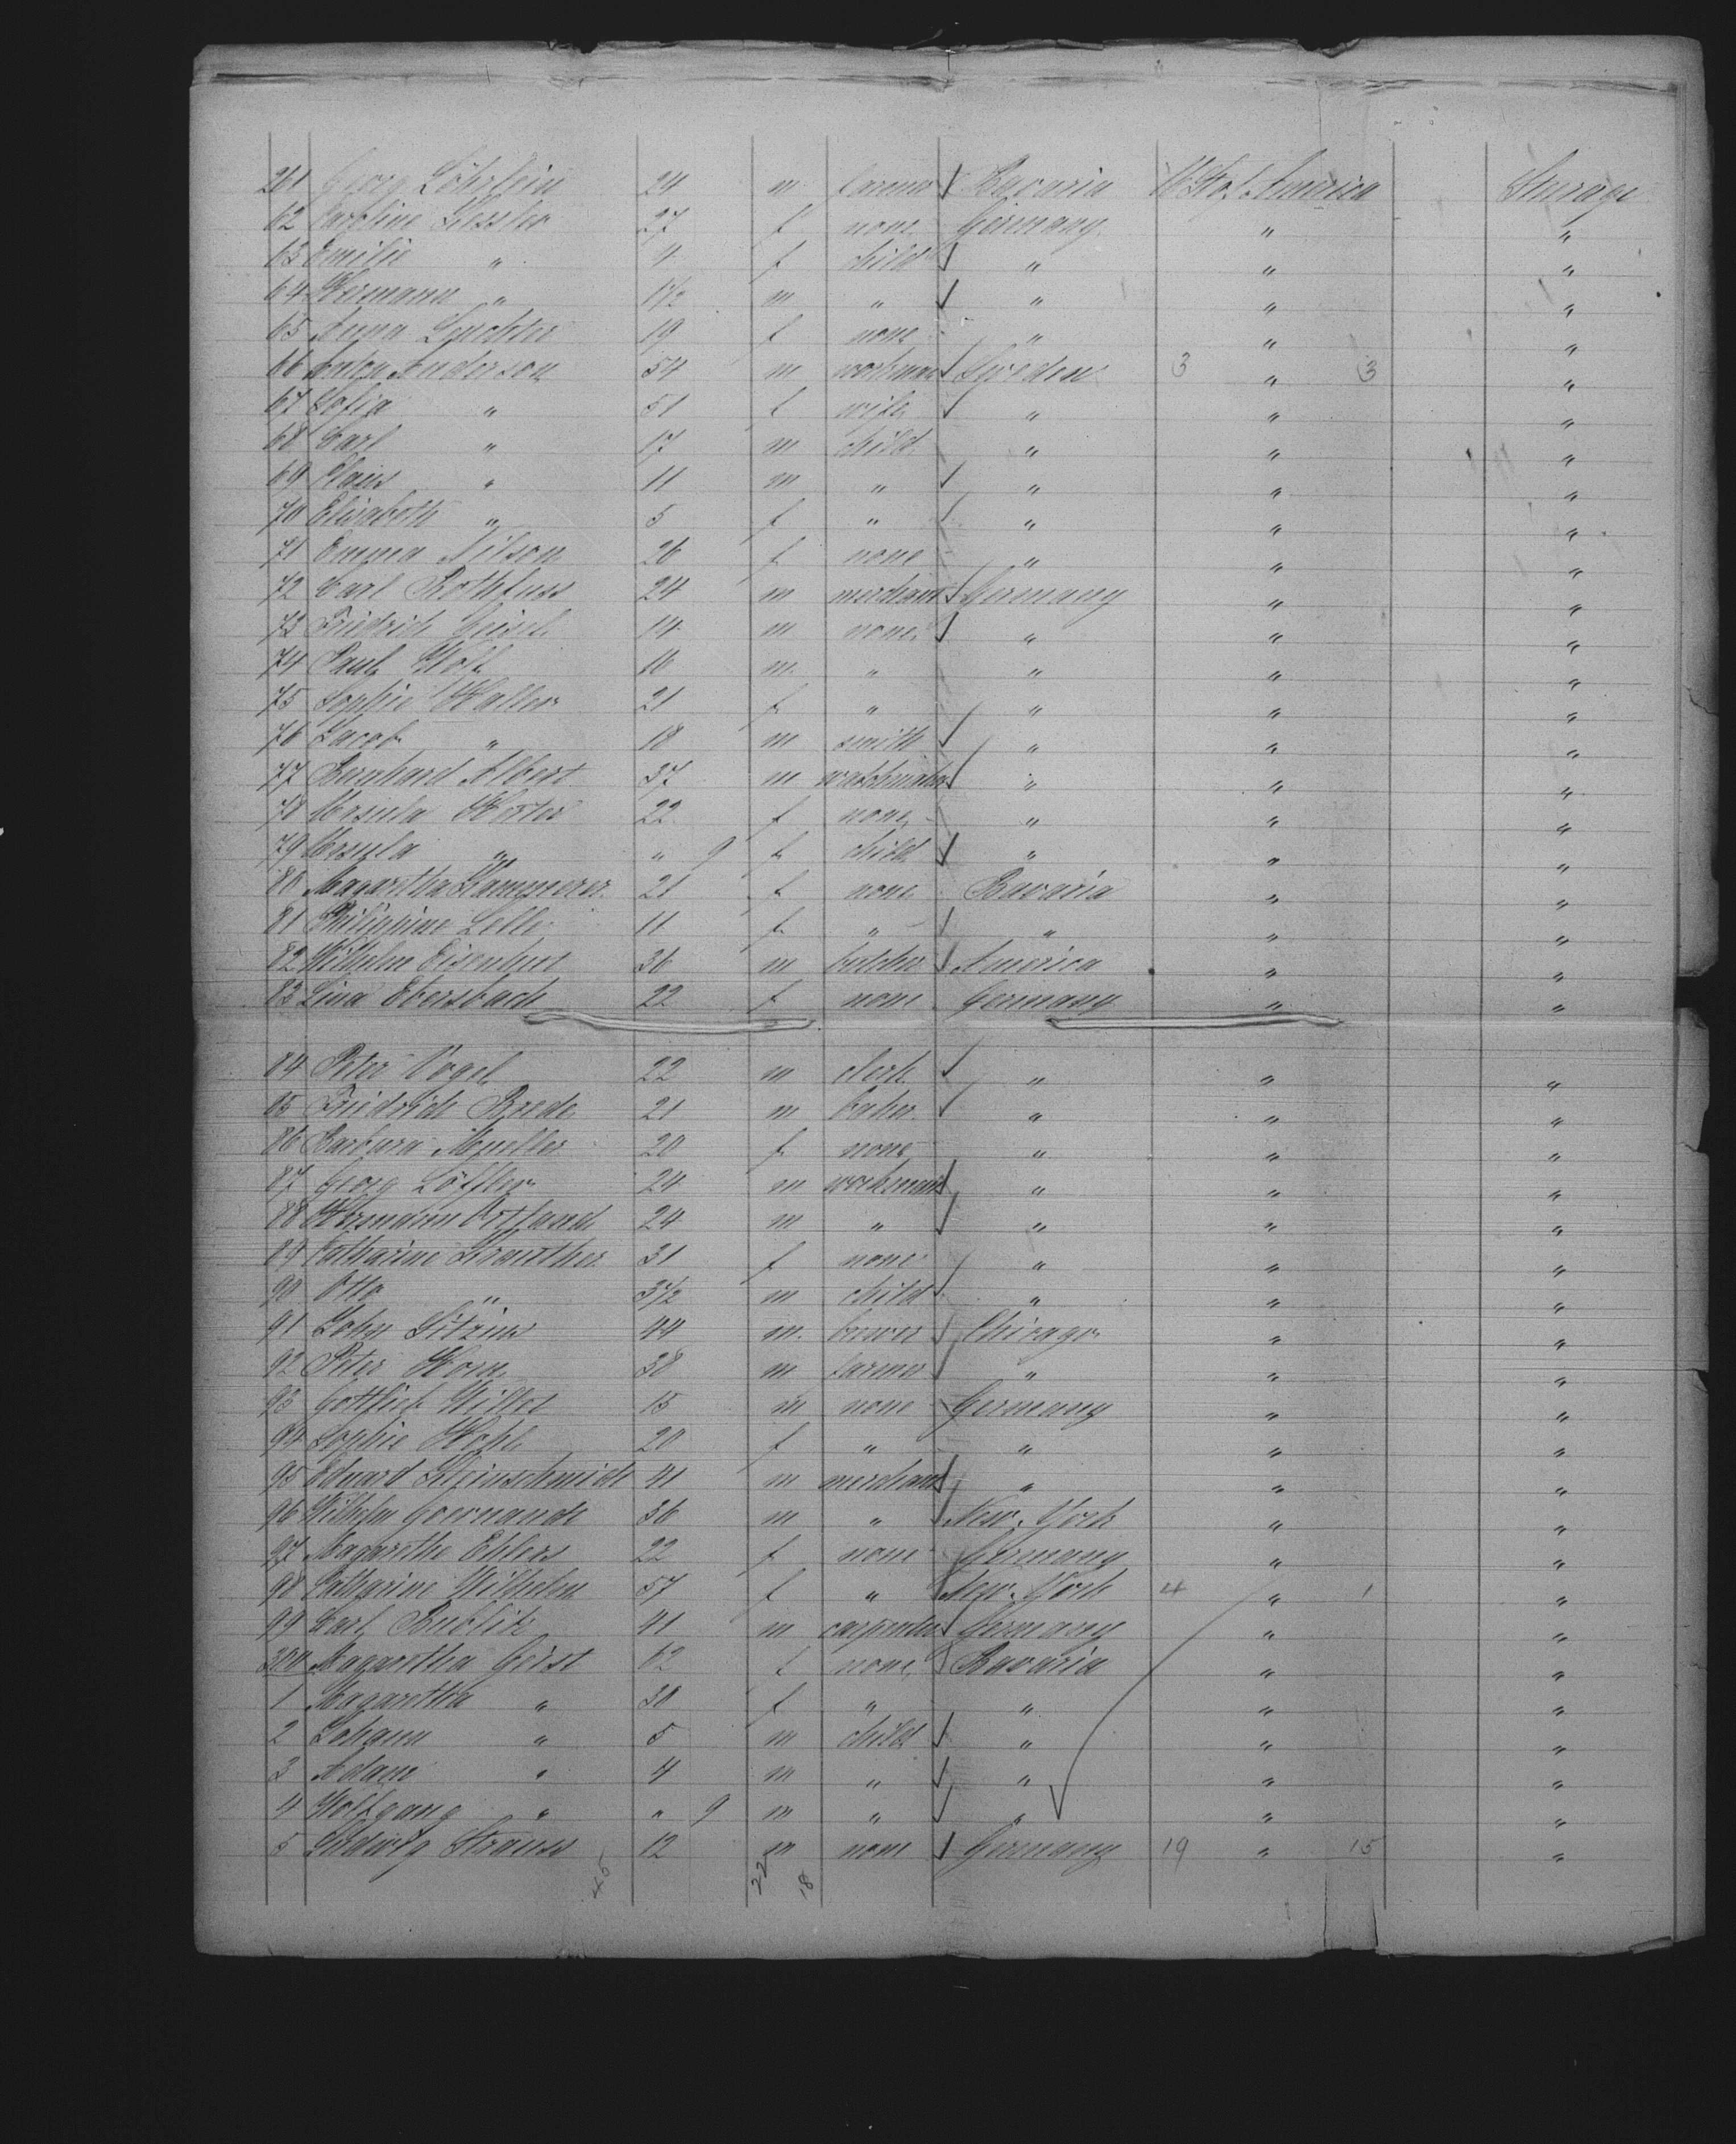 261 Georg Löhrlein 24 m farmer Bavaria U St of America Sturage
62 Caroline Kessler 27 f none Germany " "
63 Emilie " 4 f child " " "
64 Hermann " 1 1/2 m " " " "
65 Anna 19 f none " " "
66 Anderson 54 m workman Sweden 3 " 3 "
67 Sofia " 51 f wife " " "
68 Carl " 17 m child " " "
69 Claus " 11 m " " " "
70 Elisabeth " 5 f " " " "
71 Emma Nilson 26 f none " " "
72 Carl Rothfuss 24 m merchant Germany " "
73 Friedrich 14 m none " " "
74 Paul Wolf m " " " "
75 Sophie Haller 21 f " " " "
76 Jacob " 18 m smith " " "
77 Bernhard Albert 37 m watchmaker " " "
78 Ursula 22 f none " " "
79 Ursula " " 9 f child " " "
80 Magaretha Kammerer 21 f none Bavaria " "
81 Philippine Lelle 11 f " " " "
82 Wilhelm Eisenhut 36 m butcher America " "
83 Lina Ebersbach 22 f none Germany " "
84 Peter Vogel 22 m clerk " " "
85 Friedrich Brede 21 m baker " " "
86 Barbara Mueller 20 f none " " "
87 Georg Löffler 24 m workman " " "
88 Hermann Ortland 24 m " " " "
89 Catharine 31 f none " " "
90 Otto " 3 1/2 m child " " "
91 John 44 m brewer Chicago " "
92 Peter Horn 38 m farmer " " "
93 Gottlieb Willer 15 m none Germany " "
94 Sophie 20 f " " " "
95 Eduard Kleinschmidt 41 m merchant " " "
96 Wilhelm 36 m " New York " "
97 Magarethe Ehlers 22 f none Germany " "
98 Catharine Wilhelm 57 f " New York 4 " 1 "
99 Carl 41 m carpenter Germany " "
300 Magaretha Geist 62 f none Bavaria " "
1 Magaretha " 30 f " " " "
2 Johann " 5 m child " " "
3 Adam " 4 m " " " "
4 Wolfgang " " 9 m " " " "
5 Ludwig Strauss 12 m none Germany 19 " 15 "
45 22 18